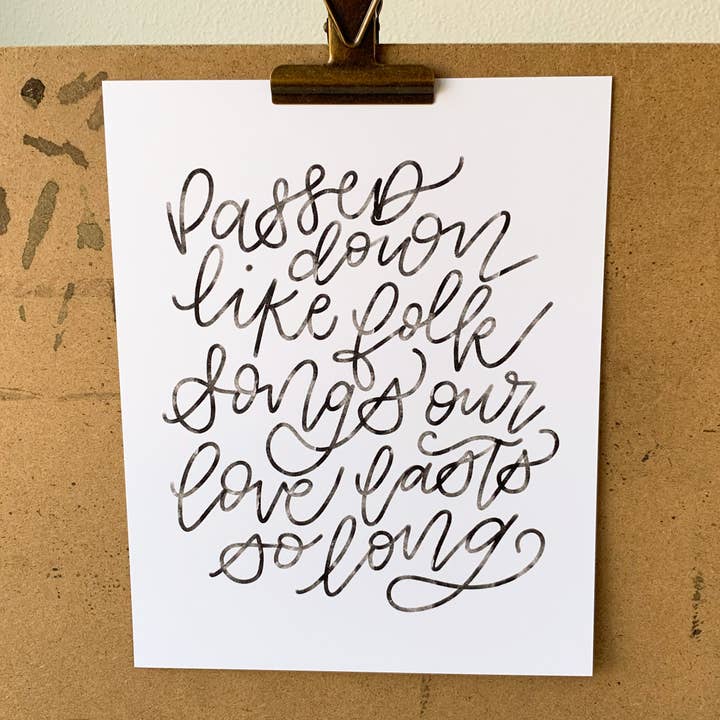 Passed
down
like folk
songs our
love lasts
so long